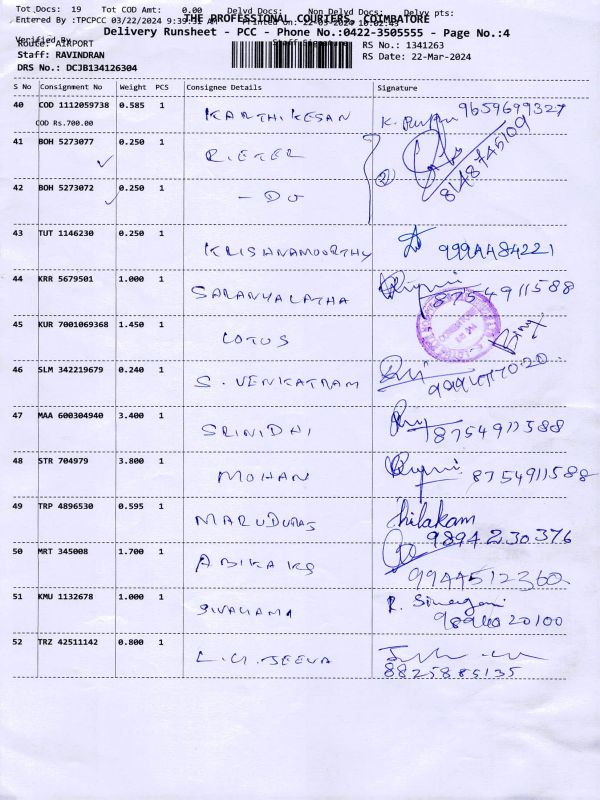 Tot Docs: 19 Tot COD Amt: 0.00 Delvd Docs: Non Delvd Docs: Delvy pts:
Entered By :TPCPCC 03/22/2024 9:39:52 AM Printed on: 22-03-2024 10:02:43
THE PROFESSIONAL COURIERS, COIMBATORE
Delivery Runsheet - PCC - Phone No.:0422-3505555 - Page No.:4
Verified By Staff Signature
Route: AIRPORT RS No.: 1341263
Staff: RAVINDRAN RS Date: 22-Mar-2024
DRS No.: DCJB134126304
S No Consignment No Weight PCS Consignee Details Signature
40 COD 1112059738 0.585 1 KARTHIKESAN 9659699327
COD Rs.700.00
41 BOH 5273077 0.250 1 RIETER 8148745109
42 BOH 5273072 0.250 1 - DO
43 TUT 1146230 0.250 1 KRISHNAMOORTHY 9994484221
44 KRR 5679501 1.000 1 SARANYALATHA 8754911588
45 KUR 7001069368 1.450 1 LOTUS
46 SLM 342219679 0.240 1 S. VENKATRAM
47 MAA 600304940 3.400 1 SRINIDHI 8754911588
48 STR 704979 3.800 1 MOHAN 8754911588
49 TRP 4896530 0.595 1 Thilakam
9894230376
50 MRT 345008 1.700 1 9944512360
51 KMU 1132678 1.000 1
52 TRZ 42511142 0.800 1 8825885135